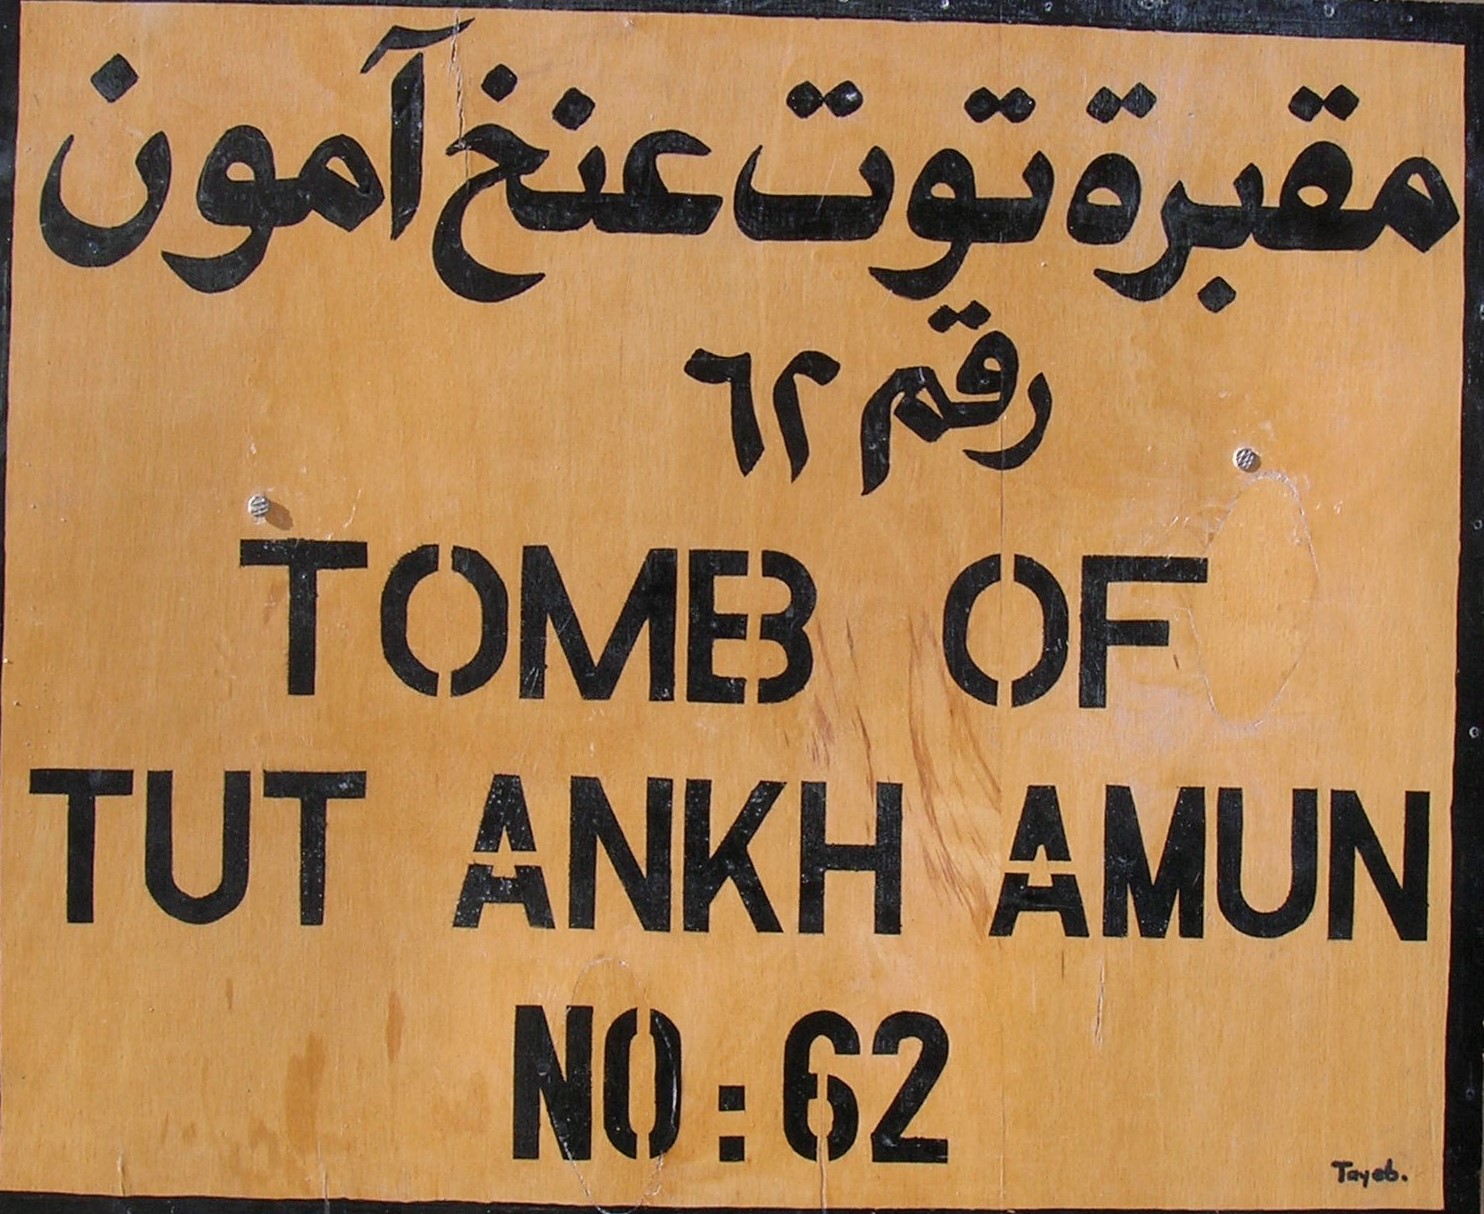 مقبرة توت عنخ آمون
رقم ٦٢
TOMB OF
TUT ANKH AMUN
NO: 62
Tayeb.